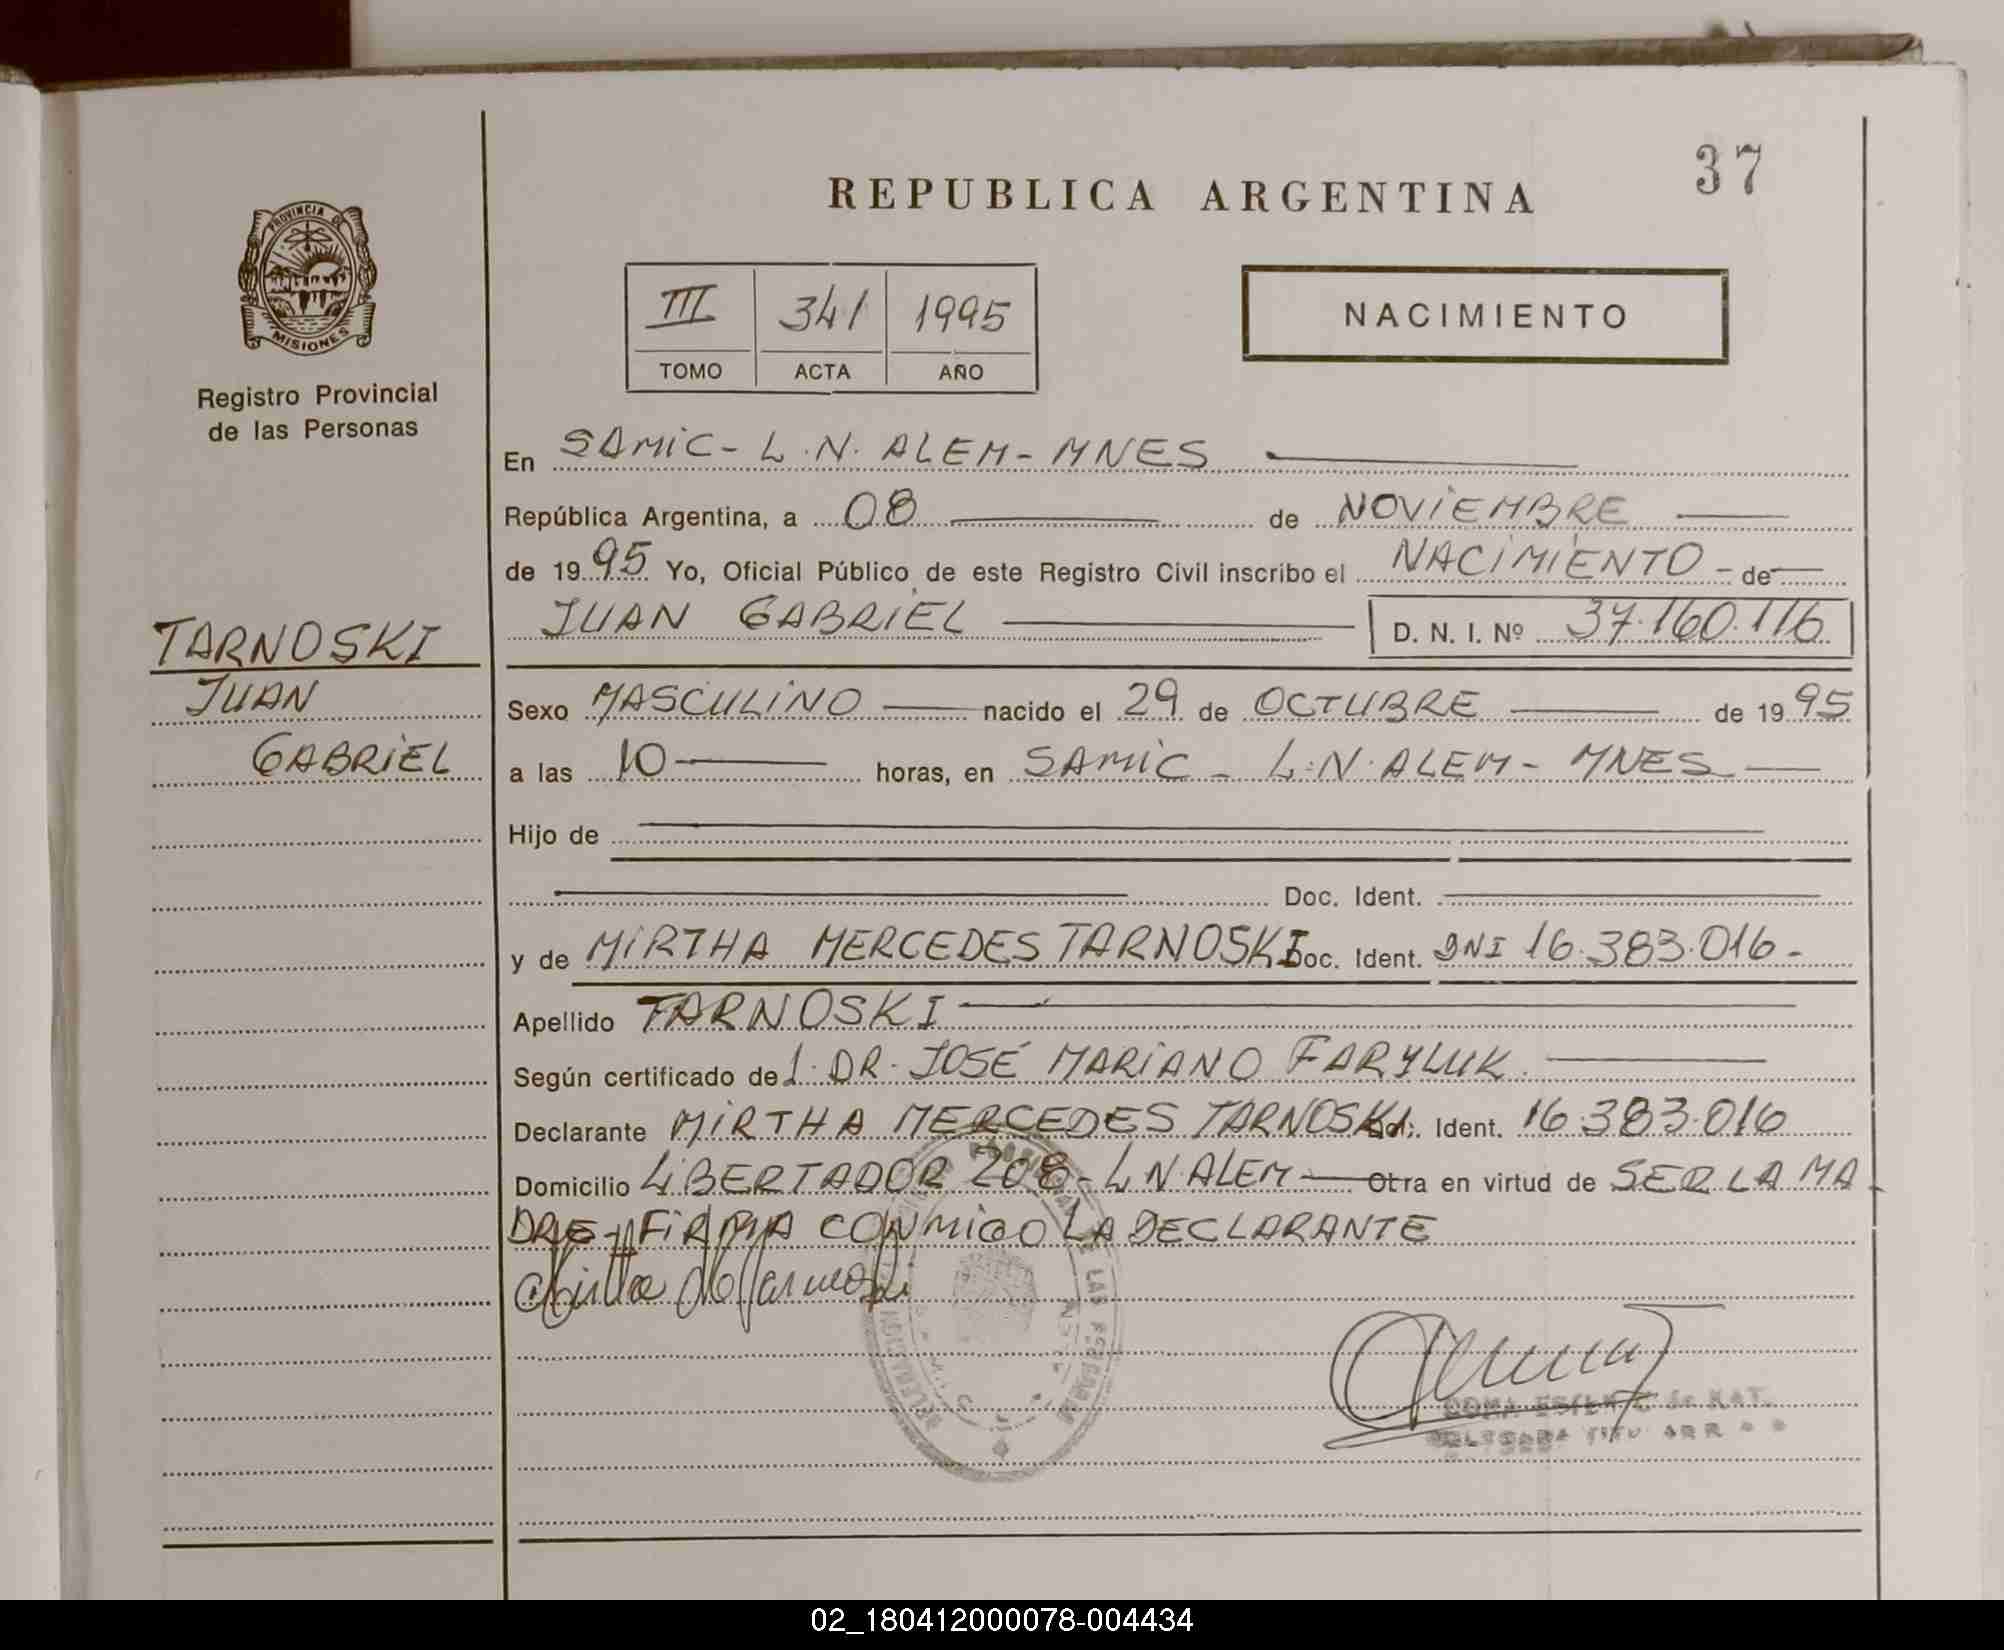 37
REPUBLICA ARGENTINA
PROVINCIA DE
MISIONES
Registro Provincial
de las Personas
III 341 1995
TOMO ACTA AÑO
NACIMIENTO
En SAMIC - L.N. ALEM - MNES
República Argentina, a 08 de NOVIEMBRE
de 1995 Yo, Oficial Público de este Registro Civil inscribo el NACIMIENTO - de
JUAN GABRIEL D. N. I. Nº 37.160.116
TARNOSKI
JUAN
GABRIEL
Sexo MASCULINO nacido el 29 de OCTUBRE de 1995
a las 10 horas, en SAMIC - L.N. ALEM - MNES
Hijo de
Doc. Ident.
y de MIRTHA MERCEDES TARNOSKI Doc. Ident. DNI 16.383.016 -
Apellido TARNOSKI
Según certificado de l. DR. JOSÉ MARIANO FARYLUK.
Declarante MIRTHA MERCEDES TARNOSKI Ident. 16.383.016
Domicilio LIBERTADOR 208 - L N. ALEM Otra en virtud de SER LA MA
DRE - FIRMA CONMIGO LA DECLARANTE
DE LAS PERSONAS
02_180412000078-004434